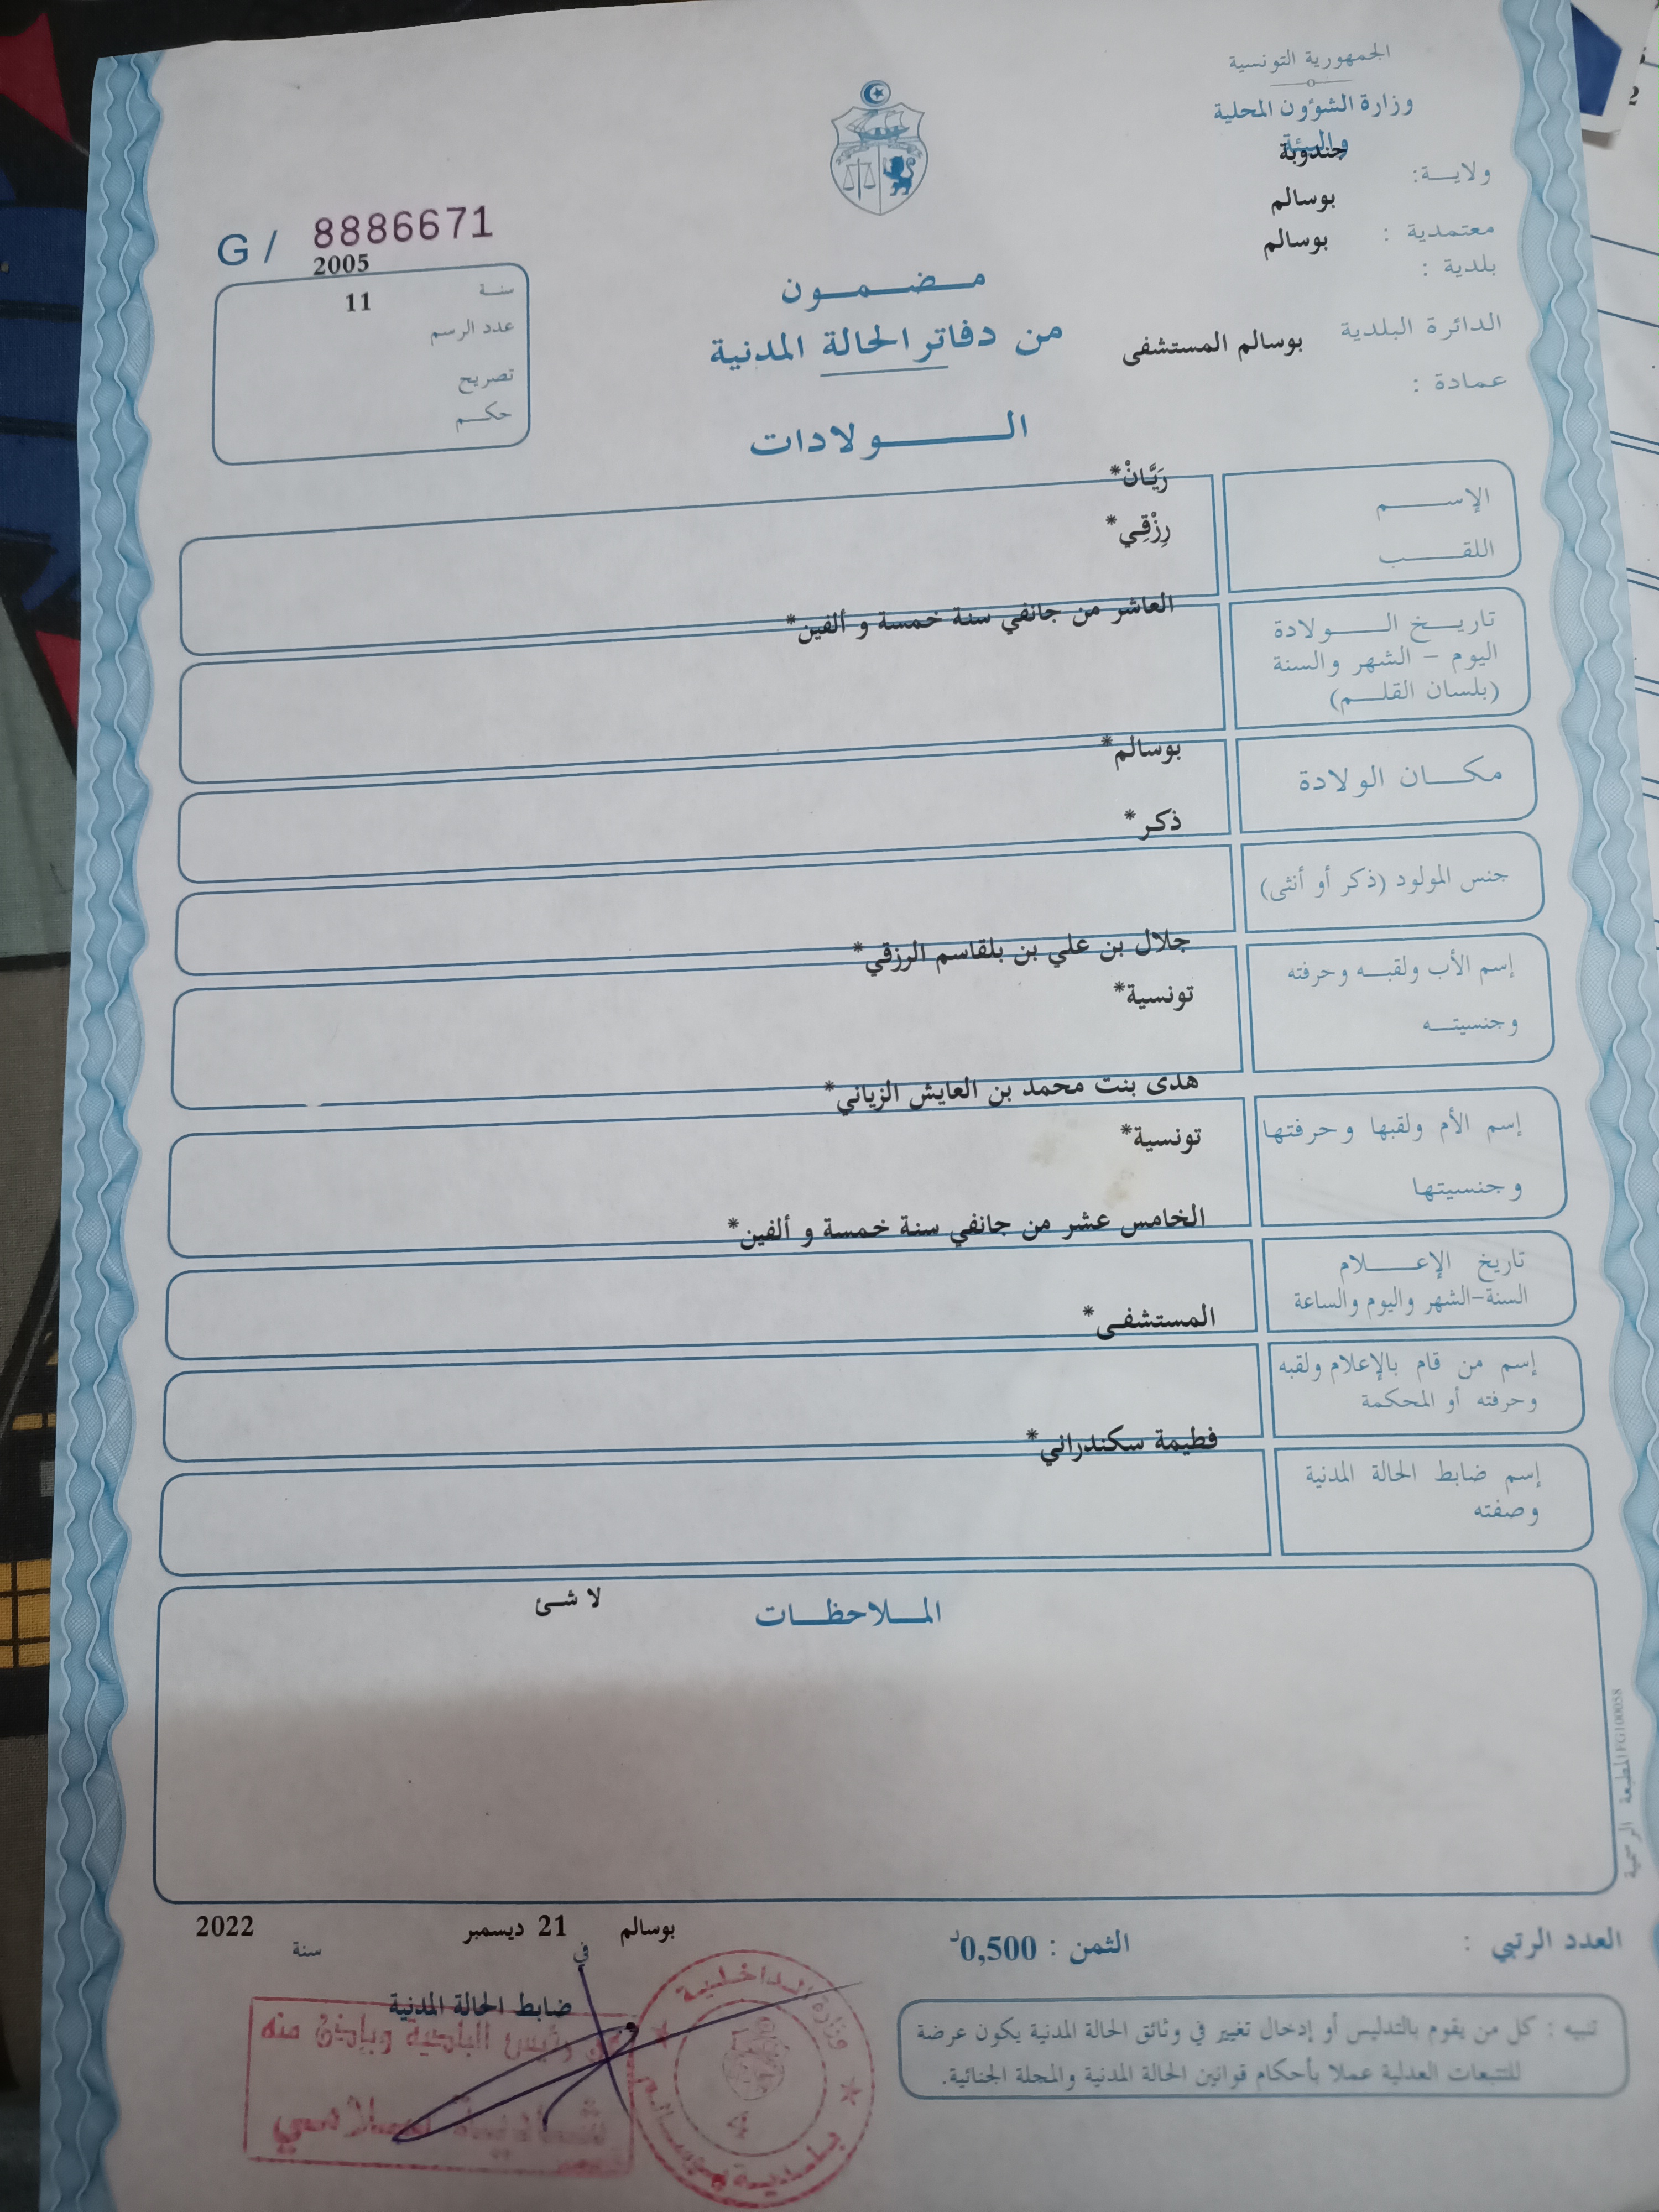 الجمهورية التونسية
وزارة الشؤون المحلية
والبيئة
ولاية: جندوبة
معتمدية : بوسالم
بلدية : بوسالم
الدائرة البلدية بوسالم المستشفى
عمادة :
G / 8886671
سنة 2005
عدد الرسم 11
تصريح
حكم
مضمون
من دفاتر الحالة المدنية
الولادات
الإسم رَيَّانْ*
اللقب رِزْقِي*
تاريخ الولادة العاشر من جانفي سنة خمسة و ألفين*
اليوم - الشهر والسنة
(بلسان القلم)
مكان الولادة بوسالم*
جنس المولود (ذكر أو أنثى) ذكر*
إسم الأب ولقبه وحرفته جلال بن علي بن بلقاسم الرزقي*
وجنسيته تونسية*
إسم الأم ولقبها وحرفتها هدى بنت محمد بن العايش الزياني*
وجنسيتها تونسية*
تاريخ الإعلام الخامس عشر من جانفي سنة خمسة و ألفين*
السنة-الشهر واليوم والساعة
إسم من قام بالإعلام ولقبه المستشفى*
وحرفته أو المحكمة
إسم ضابط الحالة المدنية فطيمة سكندراني*
وصفته
الملاحظات لا شئ
المطبعة الرسمية FG100058
العدد الرتبي :
الثمن : 0,500د
بوسالم في 21 ديسمبر سنة 2022
ضابط الحالة المدنية
تنبيه : كل من يقوم بالتدليس أو إدخال تغيير في وثائق الحالة المدنية يكون عرضة
للتتبعات العدلية عملا بأحكام قوانين الحالة المدنية والمجلة الجنائية.
وزارة الداخلية
بلدية بوسالم
4
رئيس البلدية وبإذن منه